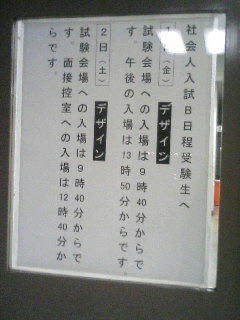 社会人入試B日程受験生へ
1日（金） デザイン
試験会場への入場は9時40分からで
す。午後の入場は13時50分からです。
2日（土） デザイン
試験会場への入場は9時40分からで
す。面接控室への入場は12時40分か
らです。